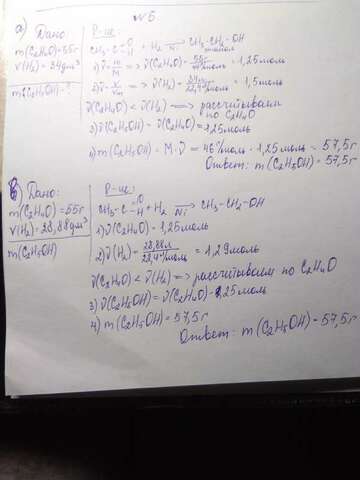 №5
а) Дано:
m(C₂H₄O) = 55г
V(H₂) = 34дм³
m(C₂H₅OH) - ?
Р-ие:
CH₃-C=O H + H₂ →Ni CH₃-CH₂-OH
1) ν = m/M => ν(C₂H₄O) = 55г / 44г/моль = 1,25моль
2) ν = V/Vm => ν(H₂) = 34дм³ / 22,4дм³/моль = 1,5моль
ν(C₂H₄O) < ν(H₂) => рассчитываем
по C₂H₄O
3) ν(C₂H₅OH) = ν(C₂H₄O) = 1,25моль
4) m(C₂H₅OH) = M·ν = 46г/моль · 1,25моль = 57,5г
Ответ: m(C₂H₅OH) = 57,5г
б) Дано:
m(C₂H₄O) = 55г
V(H₂) = 28,88дм³
m(C₂H₅OH)
Р-ие:
CH₃-C=O H + H₂ →Ni CH₃-CH₂-OH
1) ν(C₂H₄O) = 1,25моль
2) ν(H₂) = 28,88л / 22,4л/моль = 1,29моль
ν(C₂H₄O) < ν(H₂) => рассчитываем по C₂H₄O
3) ν(C₂H₅OH) = ν(C₂H₄O) = 1,25моль
4) m(C₂H₅OH) = 57,5г
Ответ: m(C₂H₅OH) = 57,5г